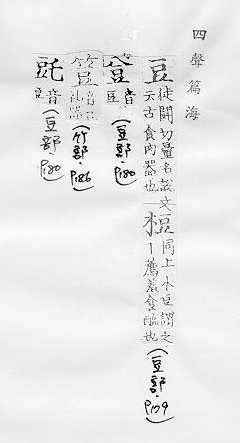 四聲篇海
豆徒鬪切量名說文云古食肉器也梪同上木豆謂之丨薦羞食醢也(豆部・P179)
音豆(豆部・P180)
䇺音豆礼器(竹部・P186)
音豆(豆部・P180)